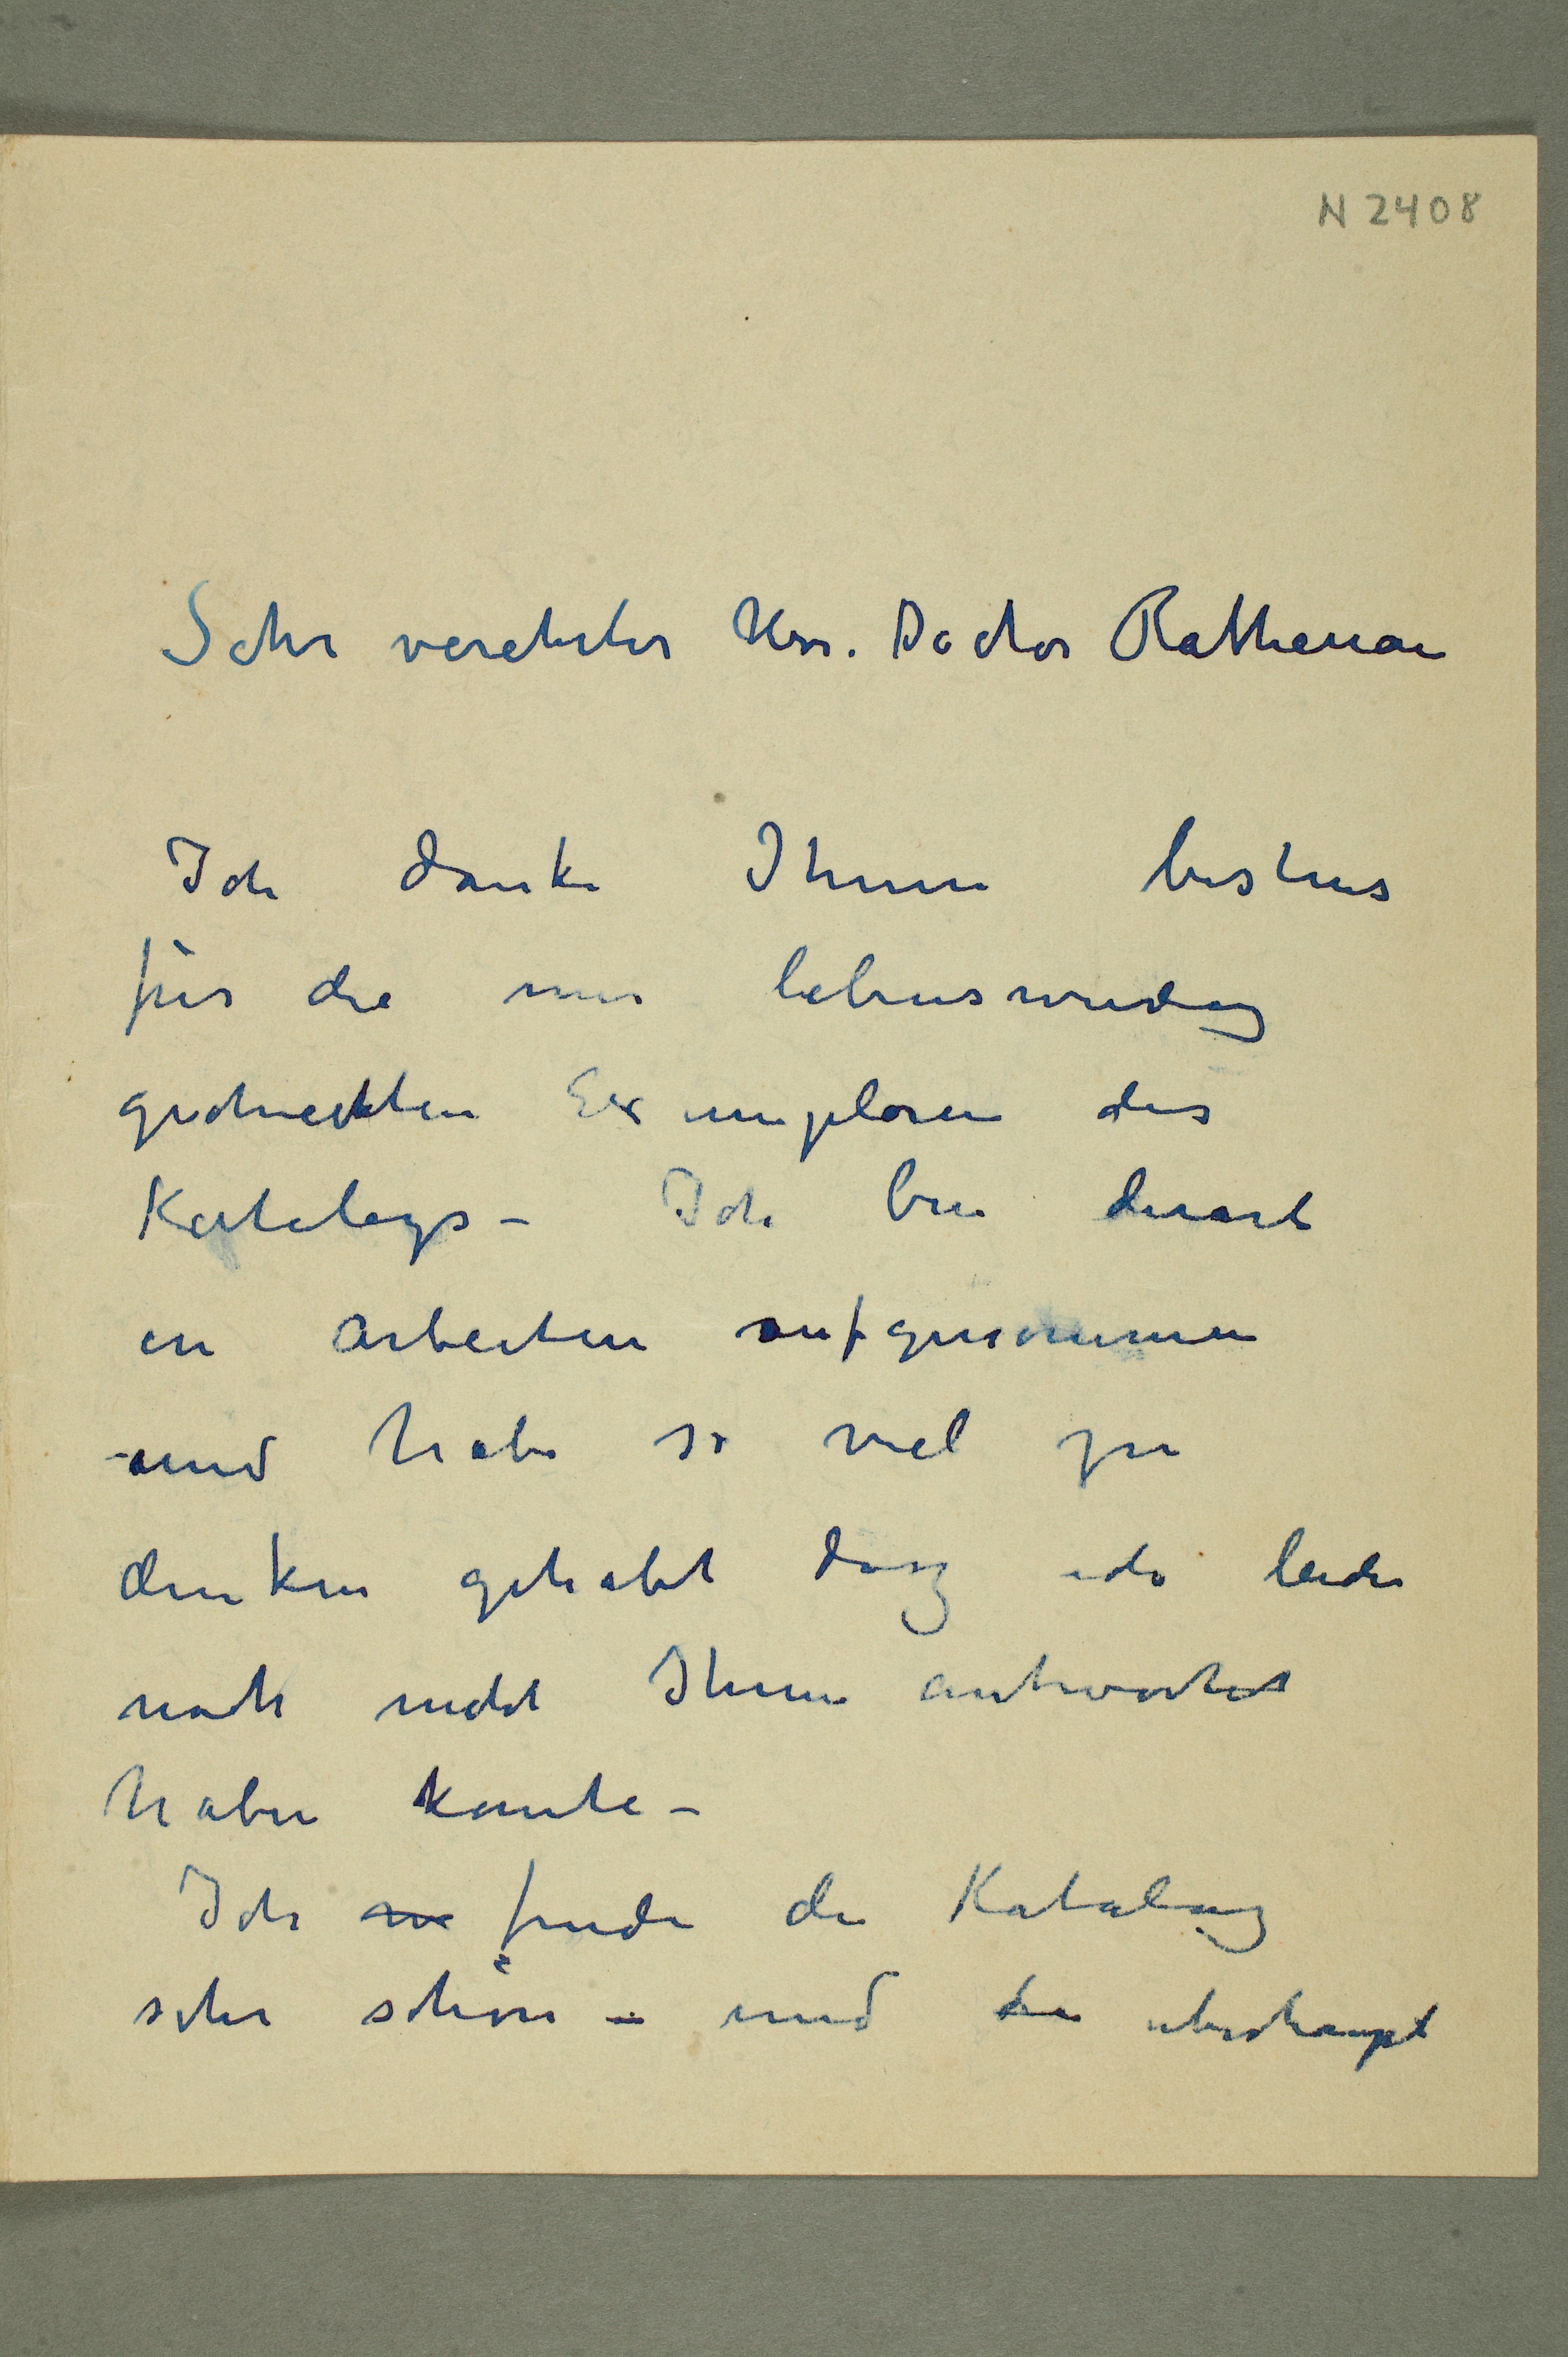 N 2408
Sehr verehrter Herr. Doctor Rathenau
Ich danke Ihnen bestens
für die mir liebenswürdig
geschickten Exemplaren des
Katalogs – Ich bin derart
in arbeiten aufgenommen
und habe so viel zu
denken gehabt dasz ich leider
noch nicht Ihnen antwortet
haben konnte –
Ich finde die Katalog
sehr schön – und überhaupt